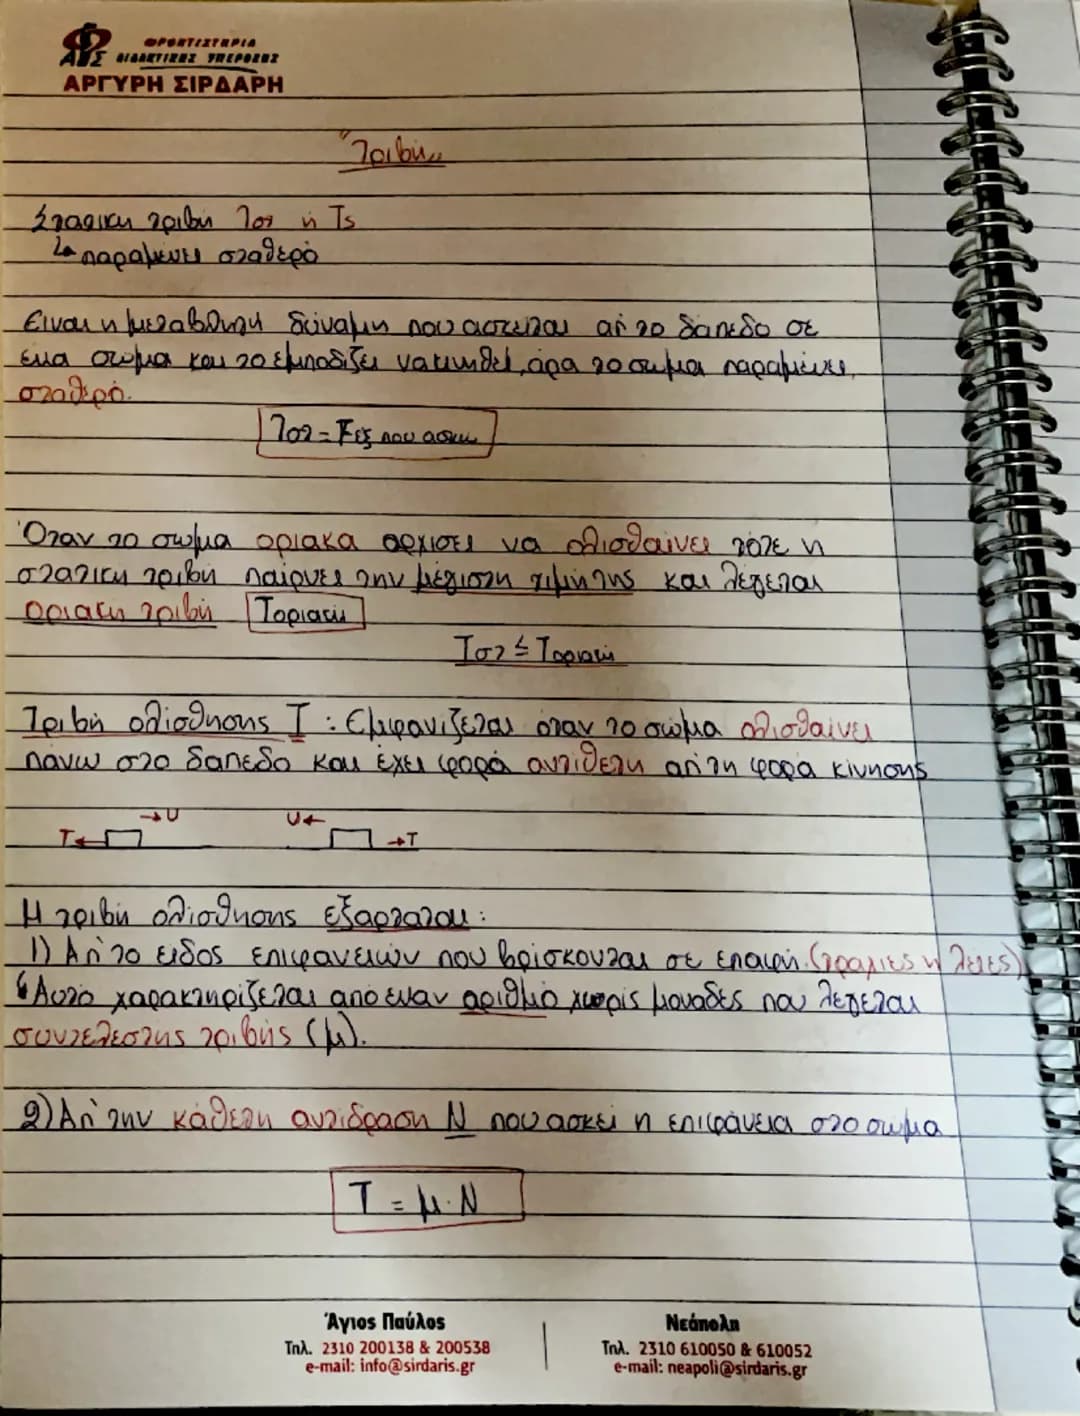 ΦΡΟΝΤΙΣΤΗΡΙΑ
ΔΙΔΑΚΤΙΚΗΣ ΥΠΕΡΟΧΗΣ
ΑΡΓΥΡΗ ΣΙΡΔΑΡΗ
"Τριβή"
Στατικη τριβή Τστ ή Τs
↳ παραμένει σταθερό
Ειναι η μεταβλητή δύναμη που ασκείται απ' το δάπεδο σε
ένα σωμα και το εμποδίζει να κινηθεί, άρα το σωμα παραμένει
σταθερό.
Τστ = Fεξ που ασκώ
Όταν το σωμα οριακα αρχισει να ολισθαίνει τότε η
στατικη τριβή παίρνει την μέγιστη τιμή της και λέγεται
οριακη τριβή Τοριακή
Τστ ≤ Τοριακή
Τριβή ολίσθησης Τ : Εμφανίζεται οταν το σώμα ολισθαίνει
πάνω στο δαπεδο και έχει φορά αντιθετη απ' τη φορα κίνησης
→U U←
Τ← →Τ
Η τριβή ολίσθησης εξαρταται:
1) Απ' το ειδος επιφανειών που βρίσκονται σε επαφή. (τραχιες ή λειες)
Αυτο χαρακτηρίζεται απο εναν αριθμό χωρίς μονάδες που λεγεται
συντελεστης τριβής (μ).
2) Απ' την κάθετη αντίδραση Ν που ασκεί η επιφάνεια στο σωμα
Τ = μ·Ν
Άγιος Παύλος
Τηλ. 2310 200138 & 200538
e-mail: info@sirdaris.gr
Νεάπολη
Τηλ. 2310 610050 & 610052
e-mail: neapoli@sirdaris.gr